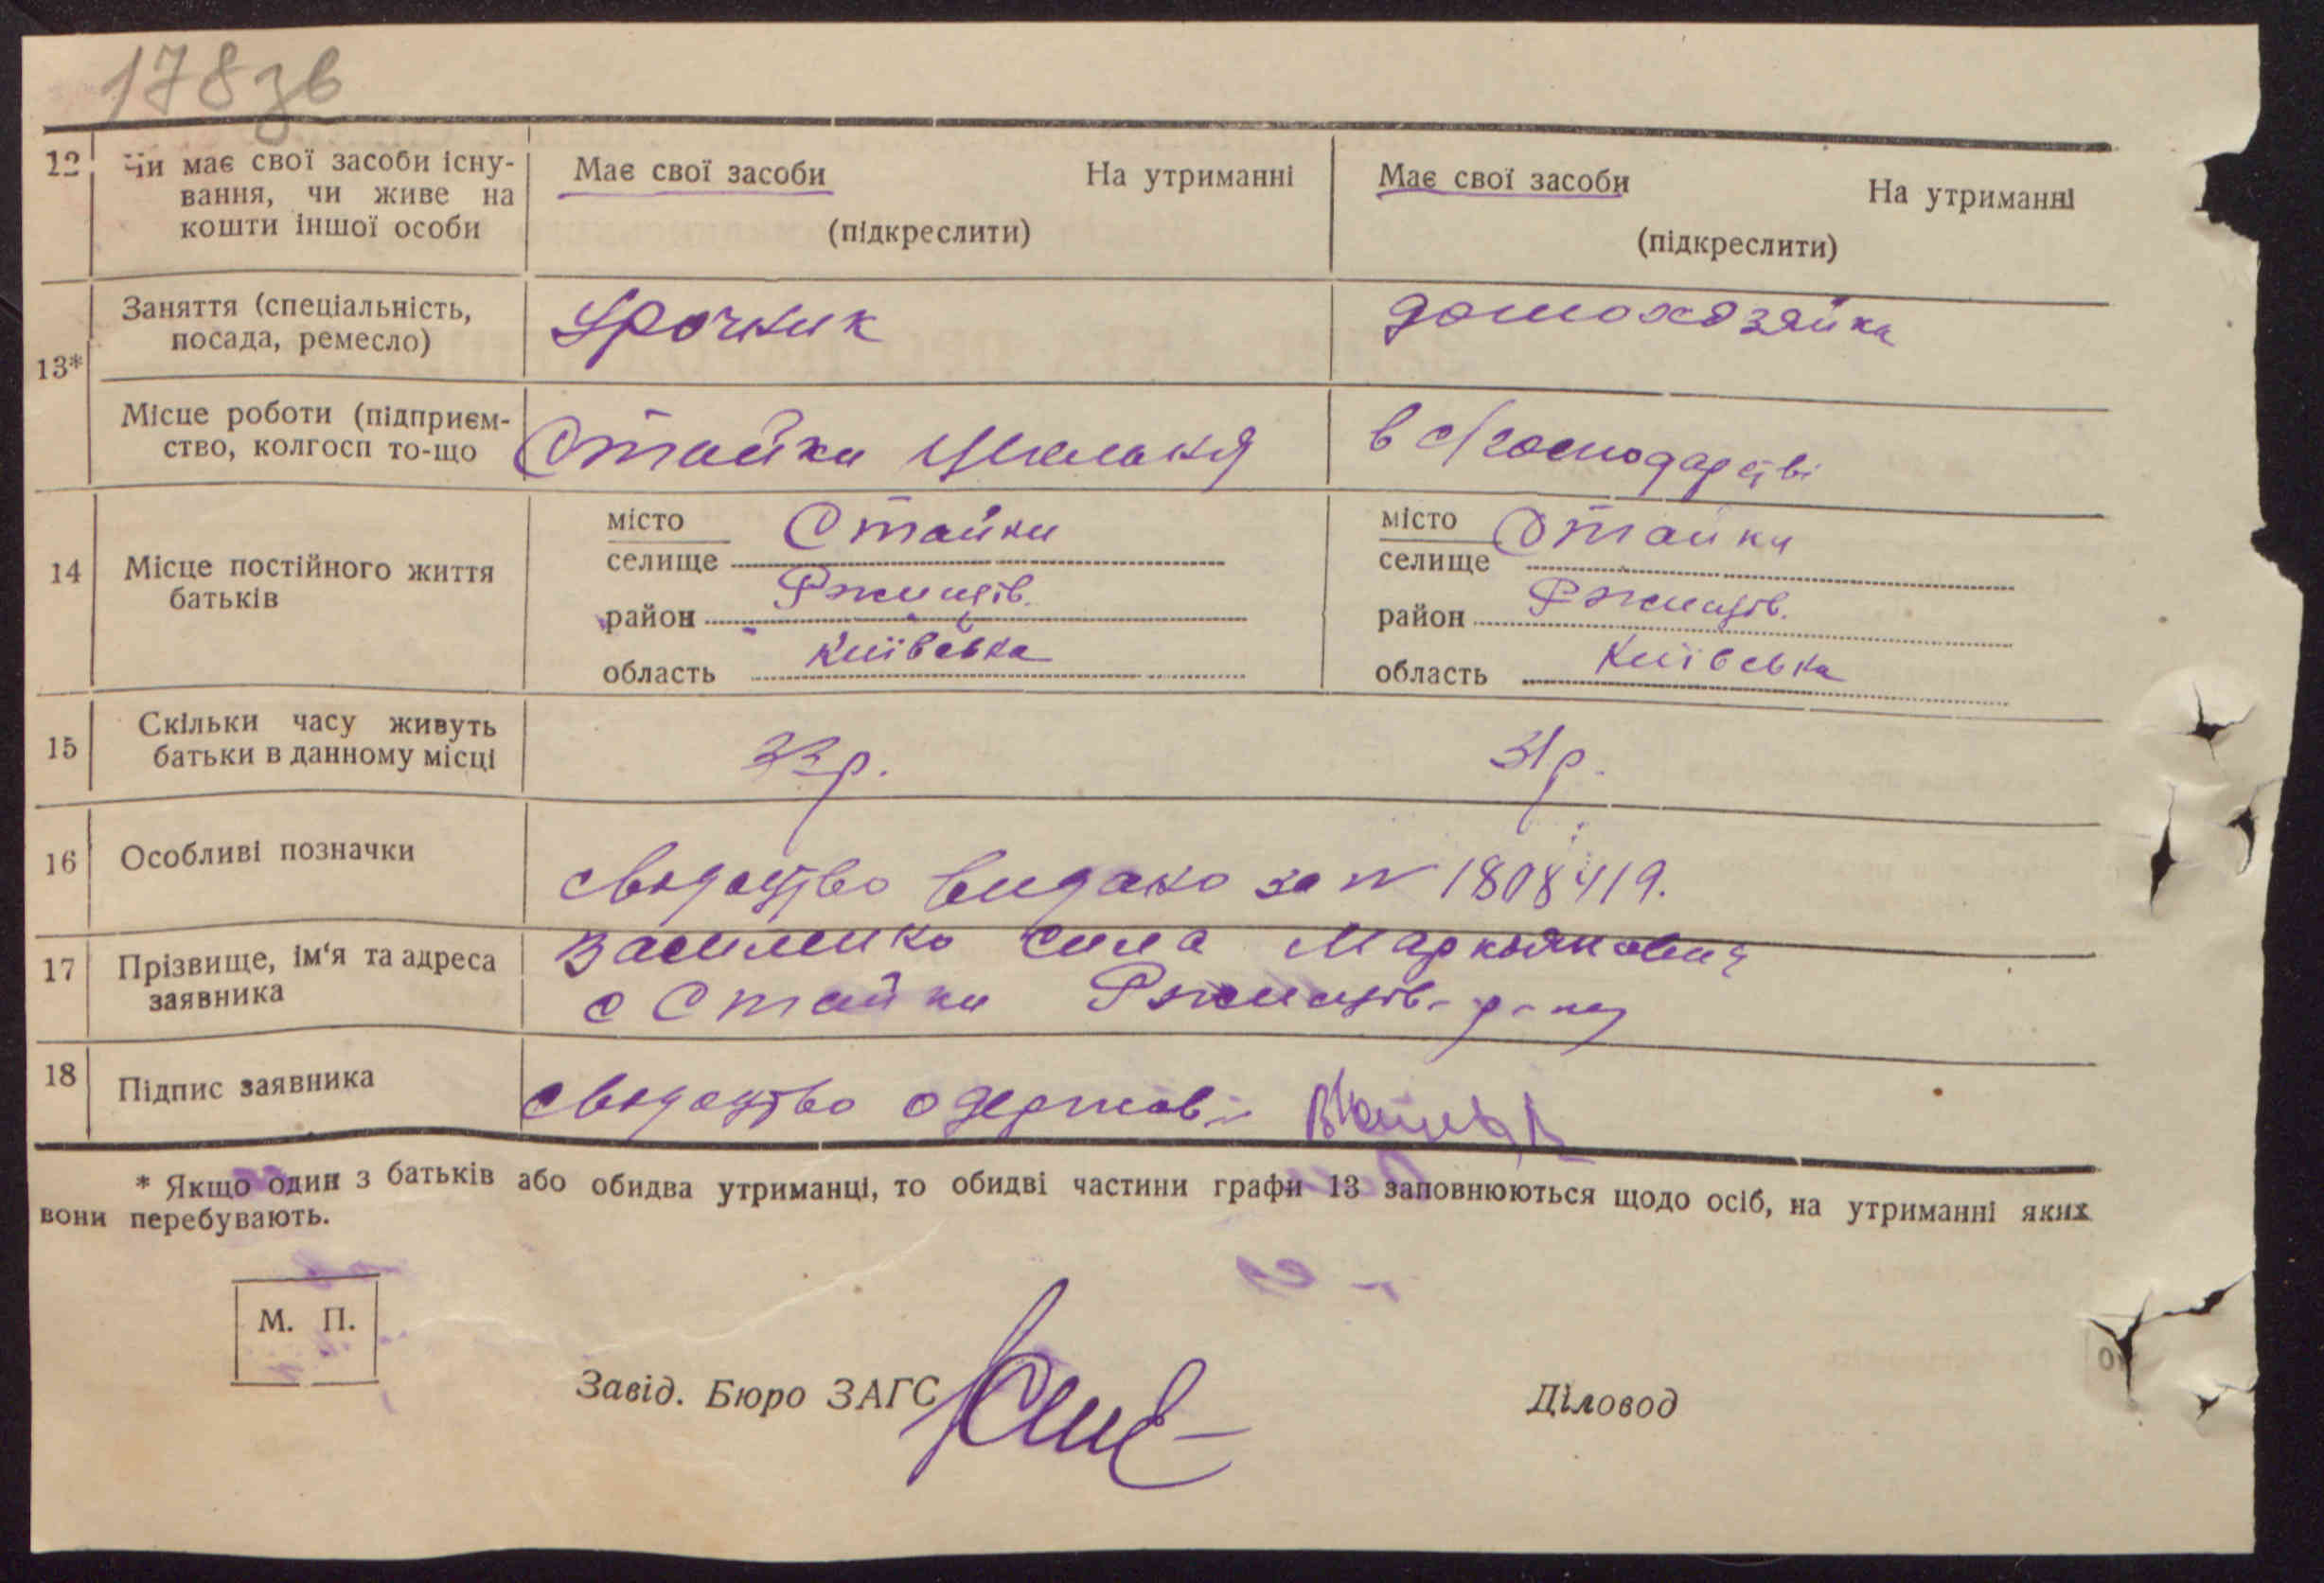 178 зв
12 Чи має свої засоби існу-
вання, чи живе на
кошти іншої особи
Має свої засоби На утриманні
(підкреслити)
Має свої засоби На утриманні
(підкреслити)
13*
Заняття (спеціальність,
посада, ремесло)
домохозяйка
Місце роботи (підприєм-
ство, колгосп то-що
Стайки
в с/господарстві
14 Місце постійного життя
батьків
місто
селище Стайки
район Ржищів.
область Київська
місто
селище Стайки
район Ржищів.
область Київська
15 Скільки часу живуть
батьки в данному місці
33 р. 31 р.
16 Особливі позначки
свидоцтво видано за № 1808419.
17 Прізвище, ім'я та адреса
заявника
Василенко Сила Маркьянович
с Стайки Ржищів- р-ну
18 Підпис заявника
свидоцтво одержав
* Якщо один з батьків або обидва утриманці, то обидві частини графи 13 заповнюються щодо осіб, на утриманні яких
вони перебувають.
М. П.
Завід. Бюро ЗАГС
Діловод